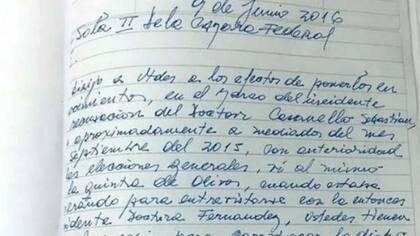 9 de Junio 2016
Sala II de la Camara Federal
dirijo a Udes a los efectos de ponerlos en
ocimientos, en el marco del incidente
recusacion del Doctor Casanello Sebastian
aproximadamente a mediados del mes
Septiembre del 2015, con anterioridad
las elecciones generales, vi al mismo
la quinta de Olivos, cuando estaba
erando para entrevistarme con la entonces
idente Doctora Fernandez, ustedes tienen